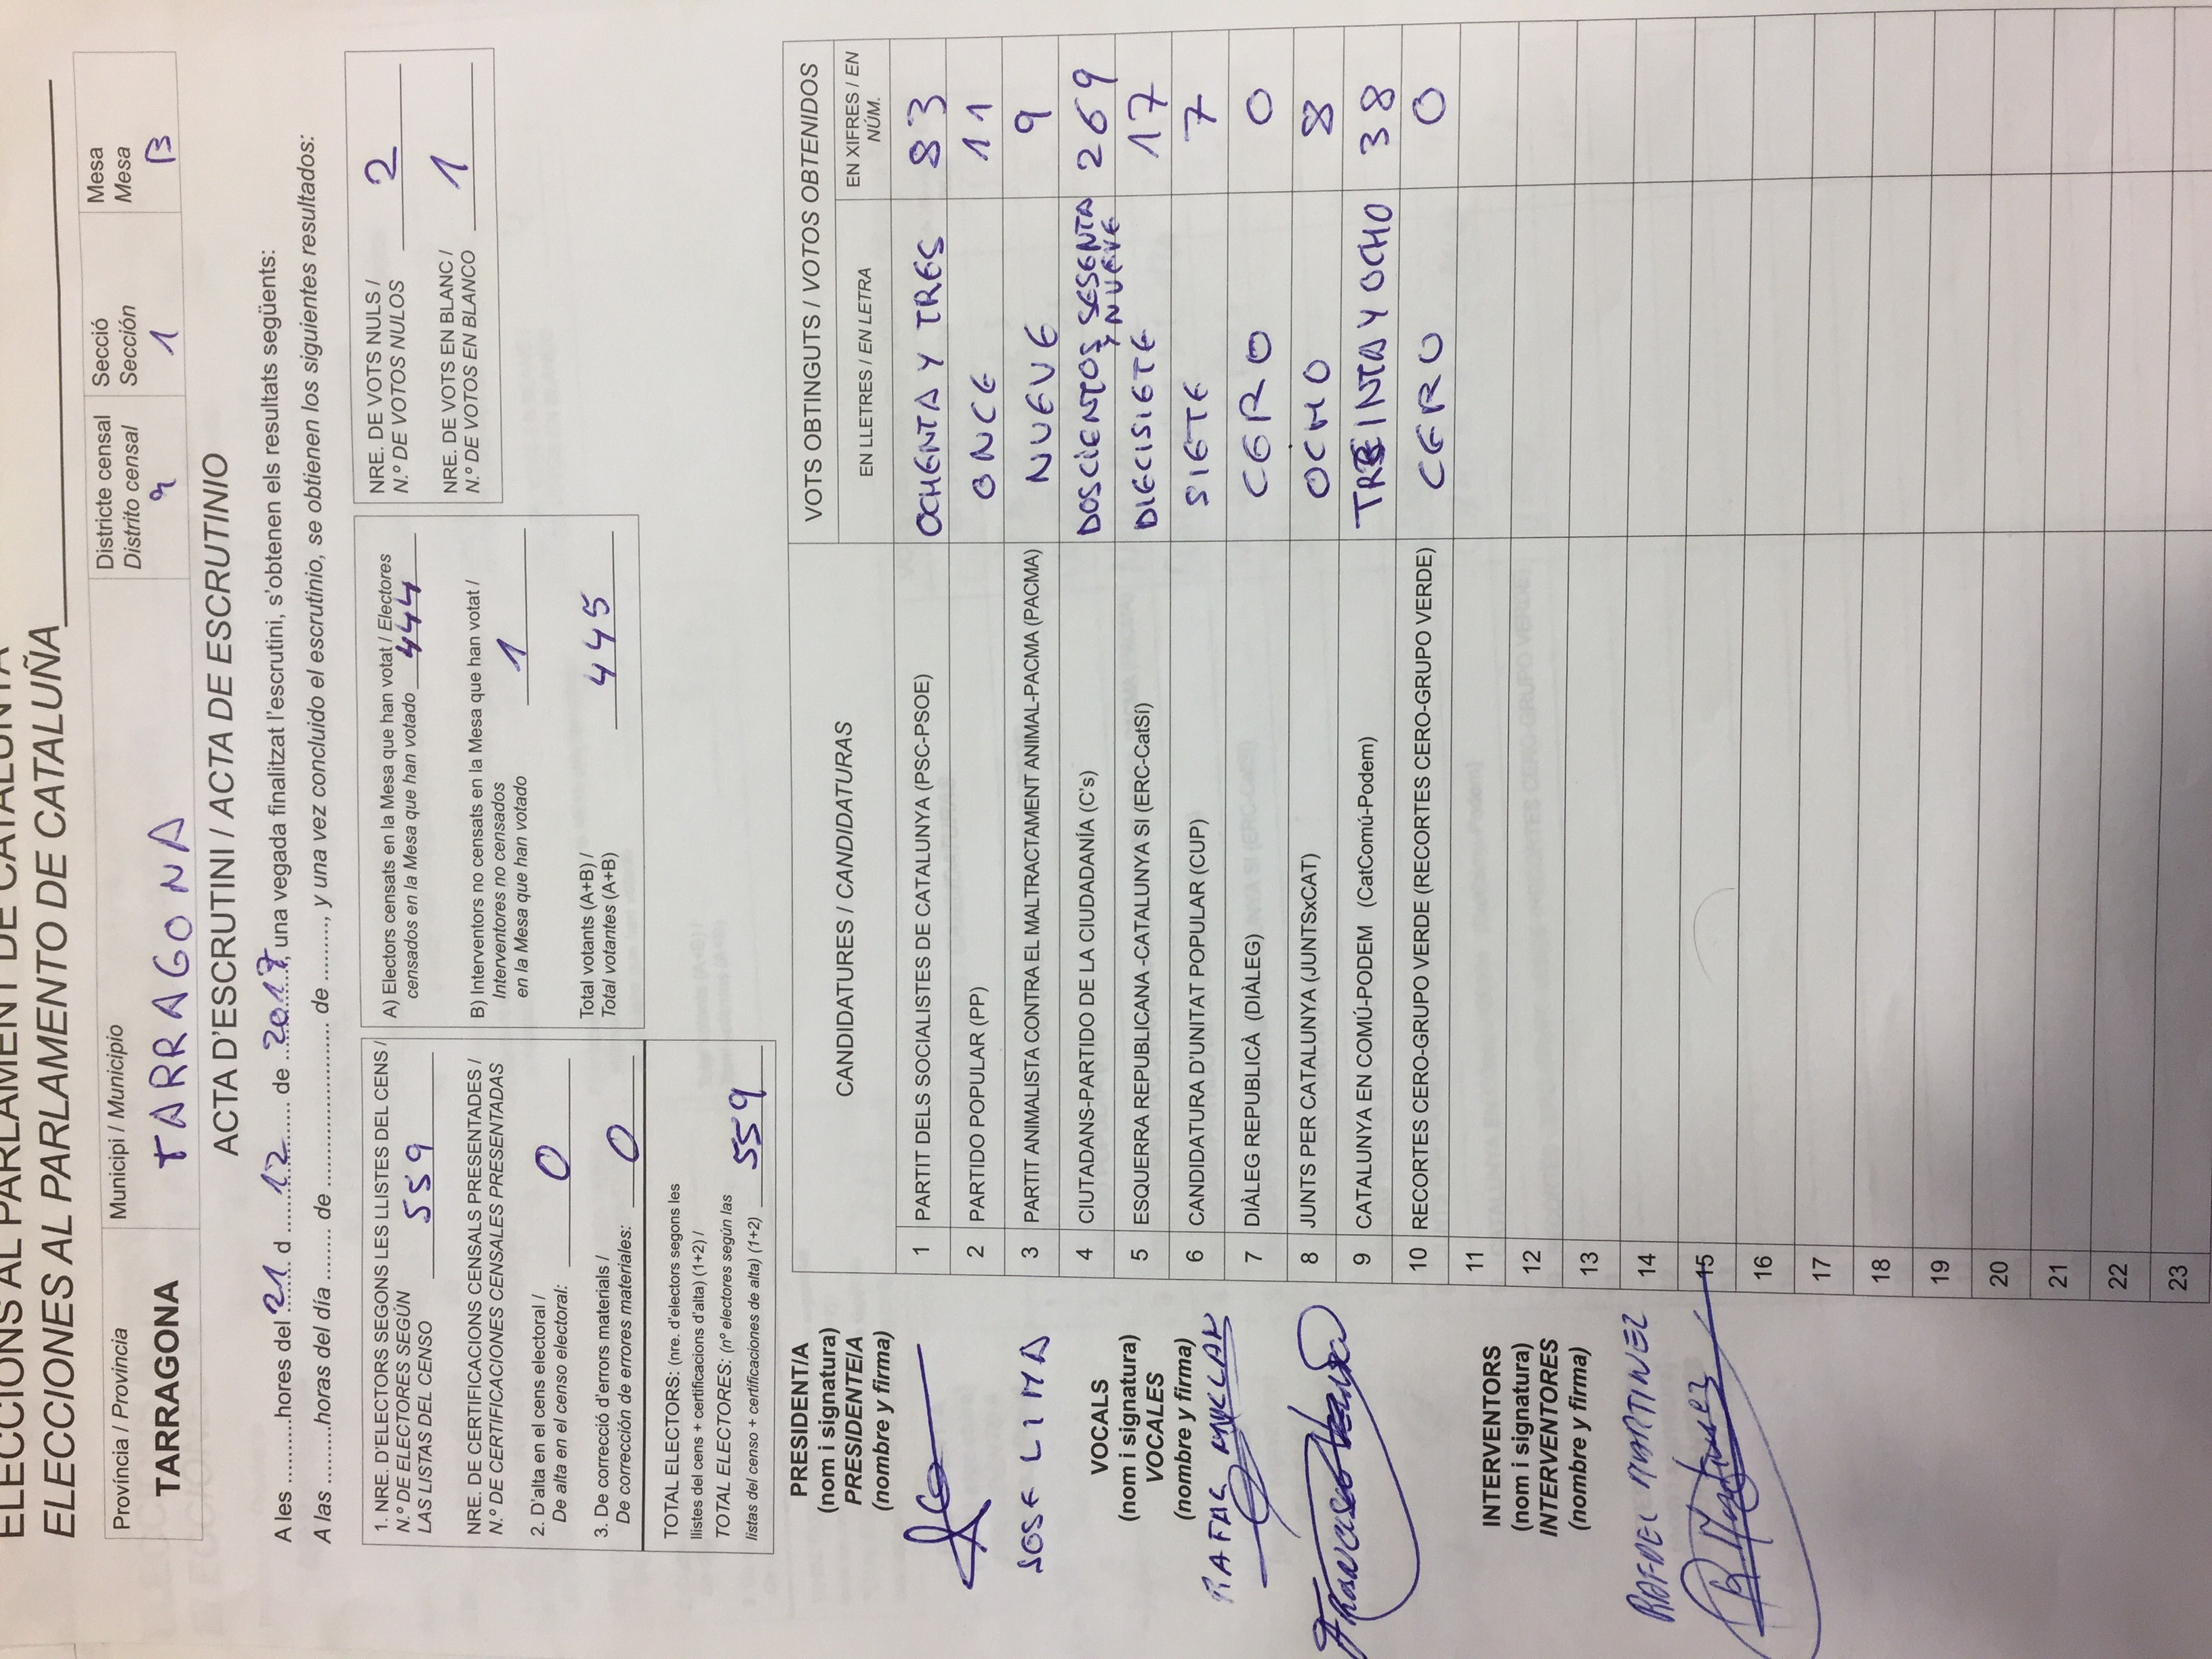 ELECCIONS AL PARLAMENT DE CATALUNYA
ELECCIONES AL PARLAMENTO DE CATALUÑA
Província / Provincia
TARRAGONA
Municipi / Municipio
TARRAGONA
Districte censal
Distrito censal
9
Secció
Sección
1
Mesa
Mesa
B
ACTA D'ESCRUTINI / ACTA DE ESCRUTINIO
A les ..........hores del 21 d 12 de 2017, una vegada finalitzat l'escrutini, s'obtenen els resultats següents:
A las .........horas del día ........ de ......................... de ........., y una vez concluido el escrutinio, se obtienen los siguientes resultados:
1. NRE. D'ELECTORS SEGONS LES LLISTES DEL CENS /
N.º DE ELECTORES SEGÚN
LAS LISTAS DEL CENSO 559
NRE. DE CERTIFICACIONS CENSALS PRESENTADES /
N.º DE CERTIFICACIONES CENSALES PRESENTADAS
2. D'alta en el cens electoral /
De alta en el censo electoral: 0
3. De correcció d'errors materials /
De corrección de errores materiales: 0
TOTAL ELECTORS: (nre. d'electors segons les
llistes del cens + certificacions d'alta) (1+2) /
TOTAL ELECTORES: (nº electores según las
listas del censo + certificaciones de alta) (1+2) 559
A) Electors censats en la Mesa que han votat / Electores
censados en la Mesa que han votado 444
B) Interventors no censats en la Mesa que han votat /
Interventores no censados
en la Mesa que han votado 1
Total votants (A+B) /
Total votantes (A+B) 445
NRE. DE VOTS NULS /
N.º DE VOTOS NULOS 2
NRE. DE VOTS EN BLANC /
N.º DE VOTOS EN BLANCO 1
PRESIDENT/A
(nom i signatura)
PRESIDENTE/A
(nombre y firma)
JOSE LIMA
VOCALS
(nom i signatura)
VOCALES
(nombre y firma)
RAFAEL
INTERVENTORS
(nom i signatura)
INTERVENTORES
(nombre y firma)
RAFAEL MARTINEZ
R Martinez
CANDIDATURES / CANDIDATURAS
VOTS OBTINGUTS / VOTOS OBTENIDOS
EN LLETRES / EN LETRA
EN XIFRES / EN
NÚM.
1 PARTIT DELS SOCIALISTES DE CATALUNYA (PSC-PSOE) OCHENTA Y TRES 83
2 PARTIDO POPULAR (PP) ONCE 11
3 PARTIT ANIMALISTA CONTRA EL MALTRACTAMENT ANIMAL-PACMA (PACMA) NUEVE 9
4 CIUTADANS-PARTIDO DE LA CIUDADANÍA (C's) DOSCIENTOS SESENTA 269
Y NUEVE
5 ESQUERRA REPUBLICANA -CATALUNYA SI (ERC-CatSí) DIECISIETE 17
6 CANDIDATURA D'UNITAT POPULAR (CUP) SIETE 7
7 DIÀLEG REPUBLICÀ (DIÀLEG) CERO 0
8 JUNTS PER CATALUNYA (JUNTSxCAT) OCHO 8
9 CATALUNYA EN COMÚ-PODEM (CatComú-Podem) TREINTA Y OCHO 38
10 RECORTES CERO-GRUPO VERDE (RECORTES CERO-GRUPO VERDE) CERO 0
11
12
13
14
15
16
17
18
19
20
21
22
23